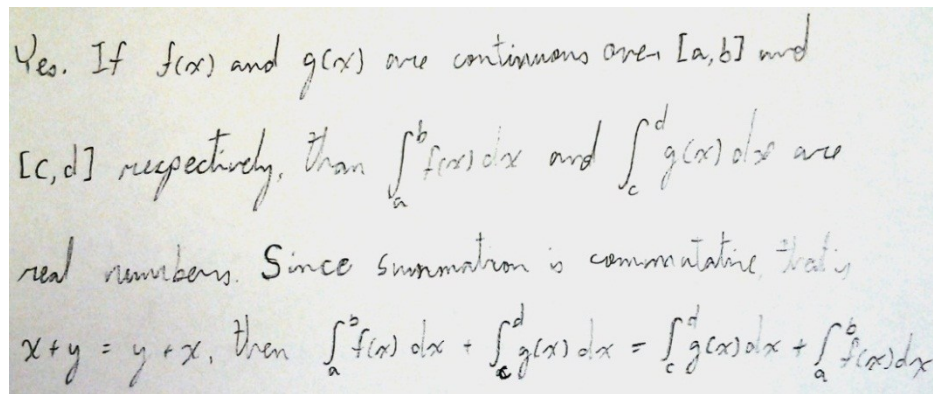 Yes. If f(x) and g(x) are continuous over [a,b] and
[c,d] respectively, than ∫_a^b f(x) dx and ∫_c^d g(x) dx are
real numbers. Since summation is commutative, that is
x+y = y+x, then ∫_a^b f(x) dx + ∫_c^d g(x) dx = ∫_c^d g(x) dx + ∫_a^b f(x) dx